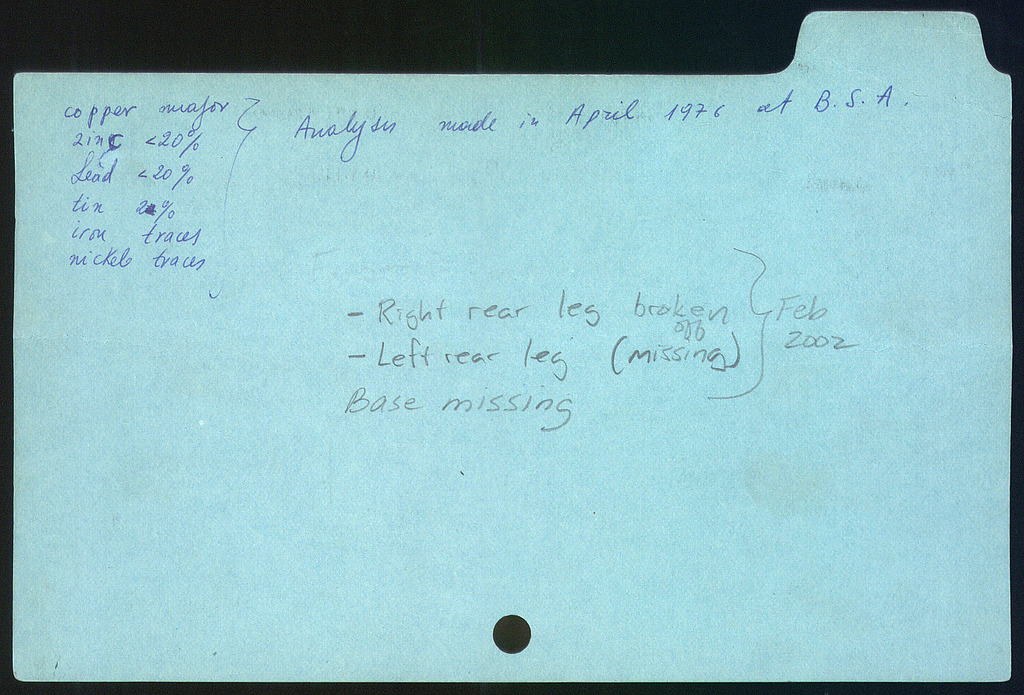 copper major
zinc <20%
Lead <20%
tin 2%
iron traces
nickel traces
Analysis made in April 1976 at B.S.A.
- Right rear leg broken off
- Left rear leg (missing)
Base missing
Feb
2002